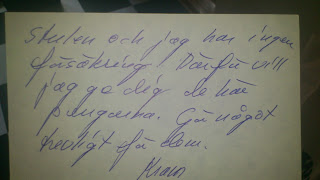 Stulen och jag har ingen
försäkring. Därför vill
jag ge dig de här
pengarna. Gör något
trevligt för dem.
Kram